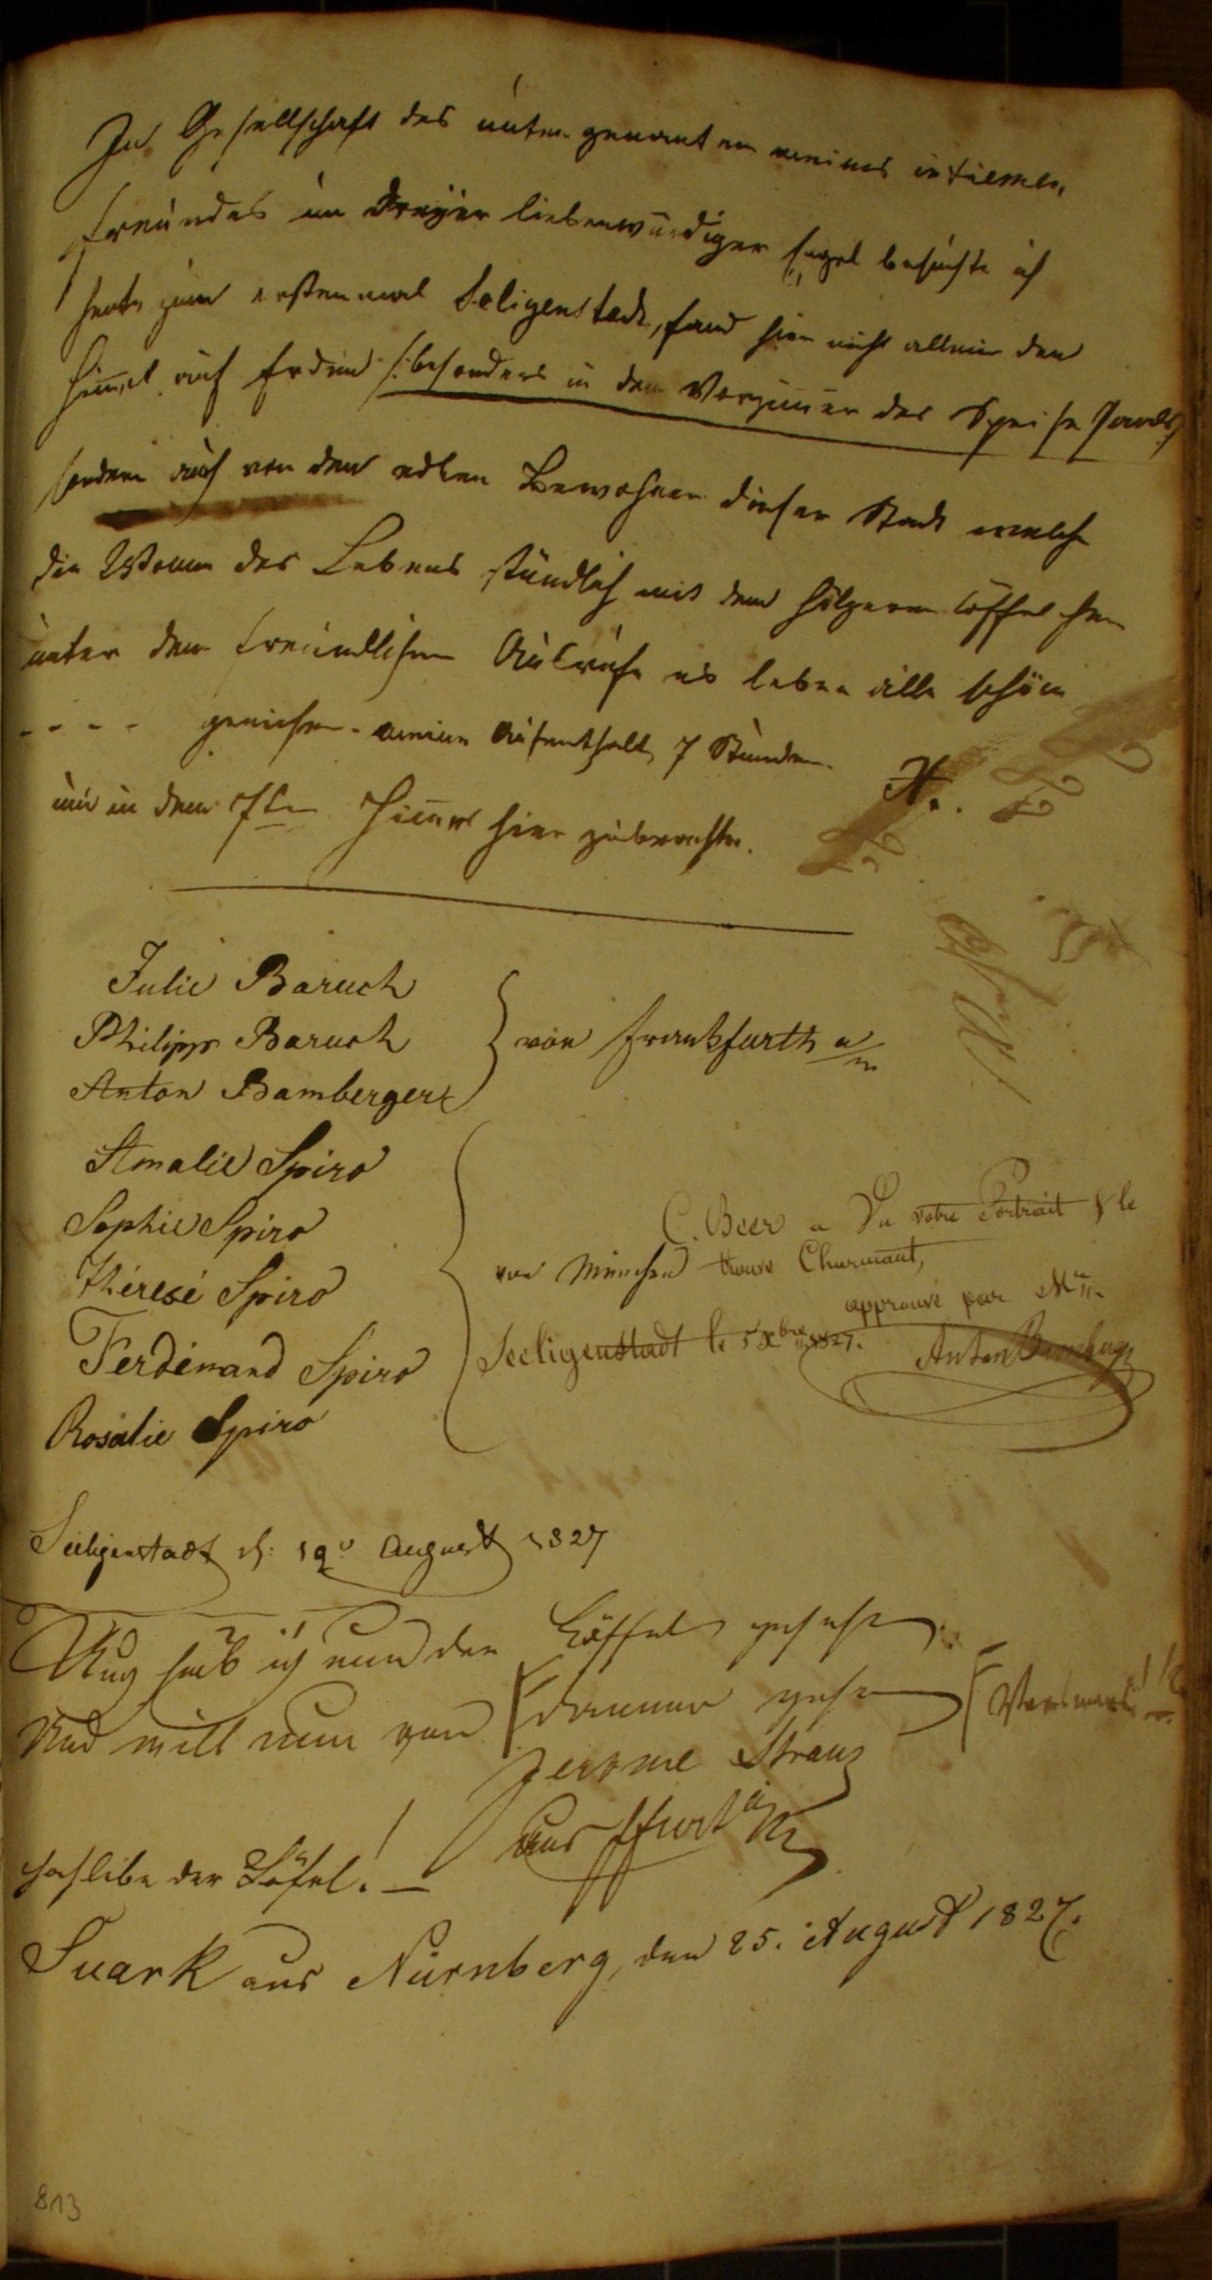 In Gesellschaft des unten genanten meines intiemen
Freundes u dreyer liebenswürdiger Engel besuchte ich
heute zum erstenmal Seligenstadt, fand hier nicht allein den
Himel auf Erden /: besonders in dem Vorzimer des Speise Saals
sondern auch von den edlen Bewohner dieser Stadt welche
die Wonne des Lebens stündlich mit dem hölzernen Löffelchen
unter dem freundlichen Ausrufe es leben alle schöne
- - - - geniesen. meinen Aufenthalt 7 Stunden
in dem 7ten Himel hier zubrachte.
Julie Baruch
Philipp Baruch
Anton Bamberger
von Frankfurth a/m
Amalie Spiro
Sophie Spiro
Thérese Spiro
Ferdinand Spiro
Rosalie Spiro
von München
C. Beer a Vu votre Portrait & le
trouve Charmant,
approuvé par
Seeligenstadt le 5 1827.
Anton Bamberger
Seeligenstadt d: 19 August 1827
hab ich nun den Löffel gesehn
Und will nun von dannen gehn
Jerome Straus
aus ffurt a/M
hoch lebe der Löfel! —
Suark aus Nürnberg, den 25. August 1827.
813